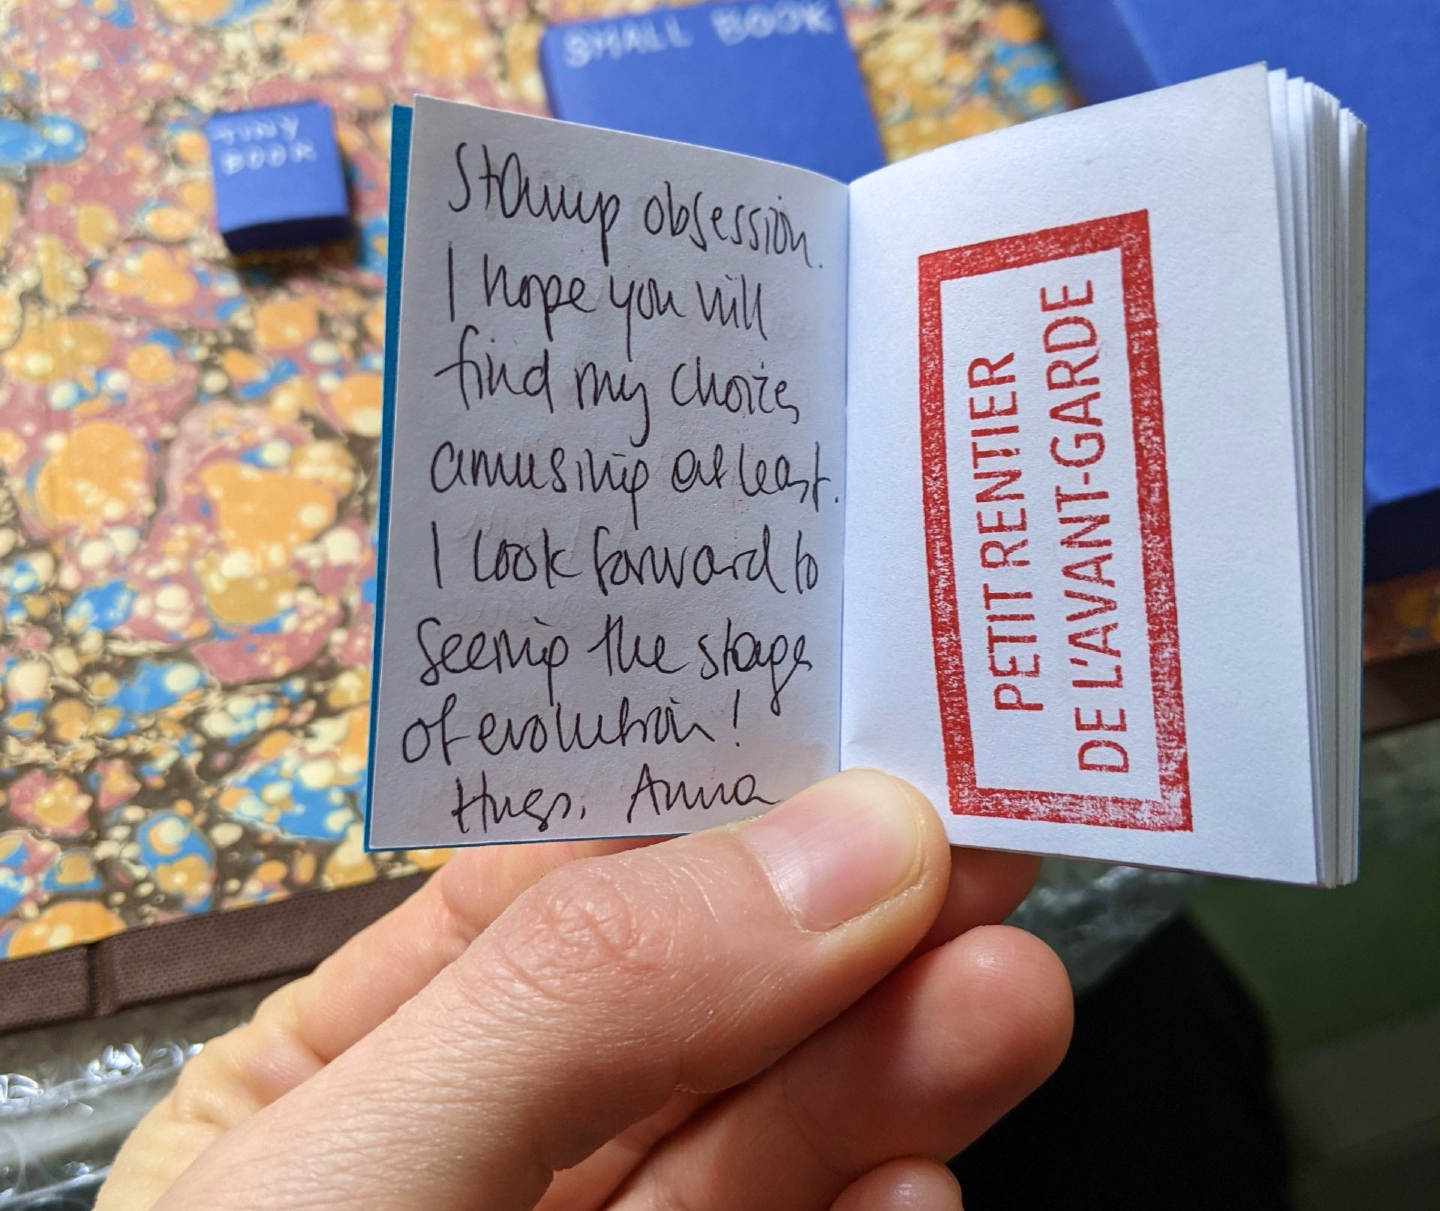 TINY
BOOK
SMALL BOOK
Stamp obsession.
I hope you will
find my choice
amusing at least.
I look forward to
seeing the stage
of evolution!
Hugs, Anna
PETIT RENTIER
DE L'AVANT-GARDE